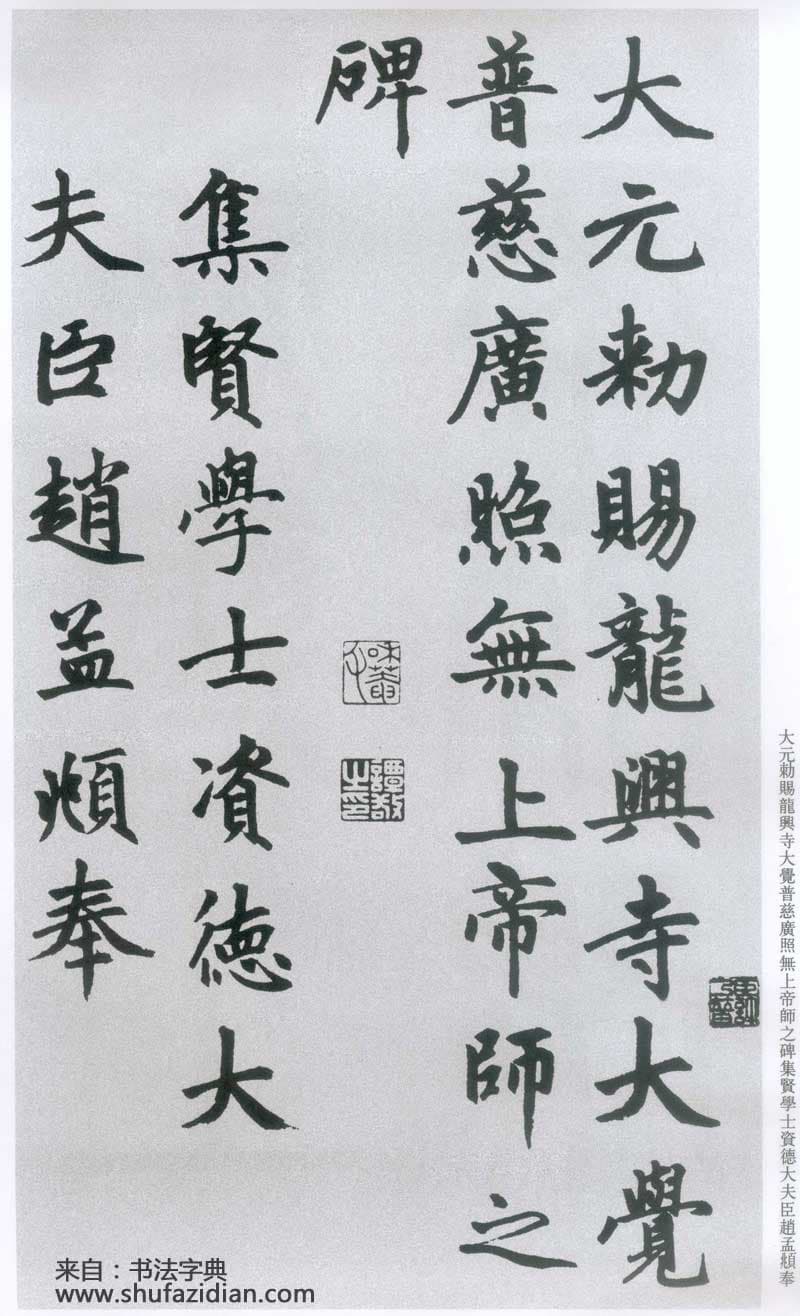 大元勑賜龍興寺大覺
普慈廣照無上帝師之
碑
集賢學士資德大
夫臣趙孟頫奉
大元勅賜龍興寺大覺普慈廣照無上帝師之碑集賢學士資德大夫臣趙孟頫奉
来自：书法字典
www.shufazidian.com